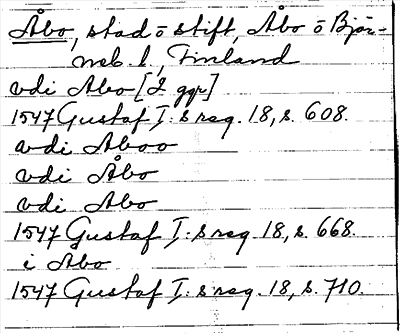 Åbo, stad o stift, Åbo o Björ-
neb. l., Finland
vdi Abo [2 ggr]
1547 Gustaf I:s reg. 18, s. 608.
vdi Aboo
vdi Åbo
vdi Abo
1547 Gustaf I:s reg. 18, s. 668.
i Abo
1547 Gustaf I:s reg. 18, s. 710.